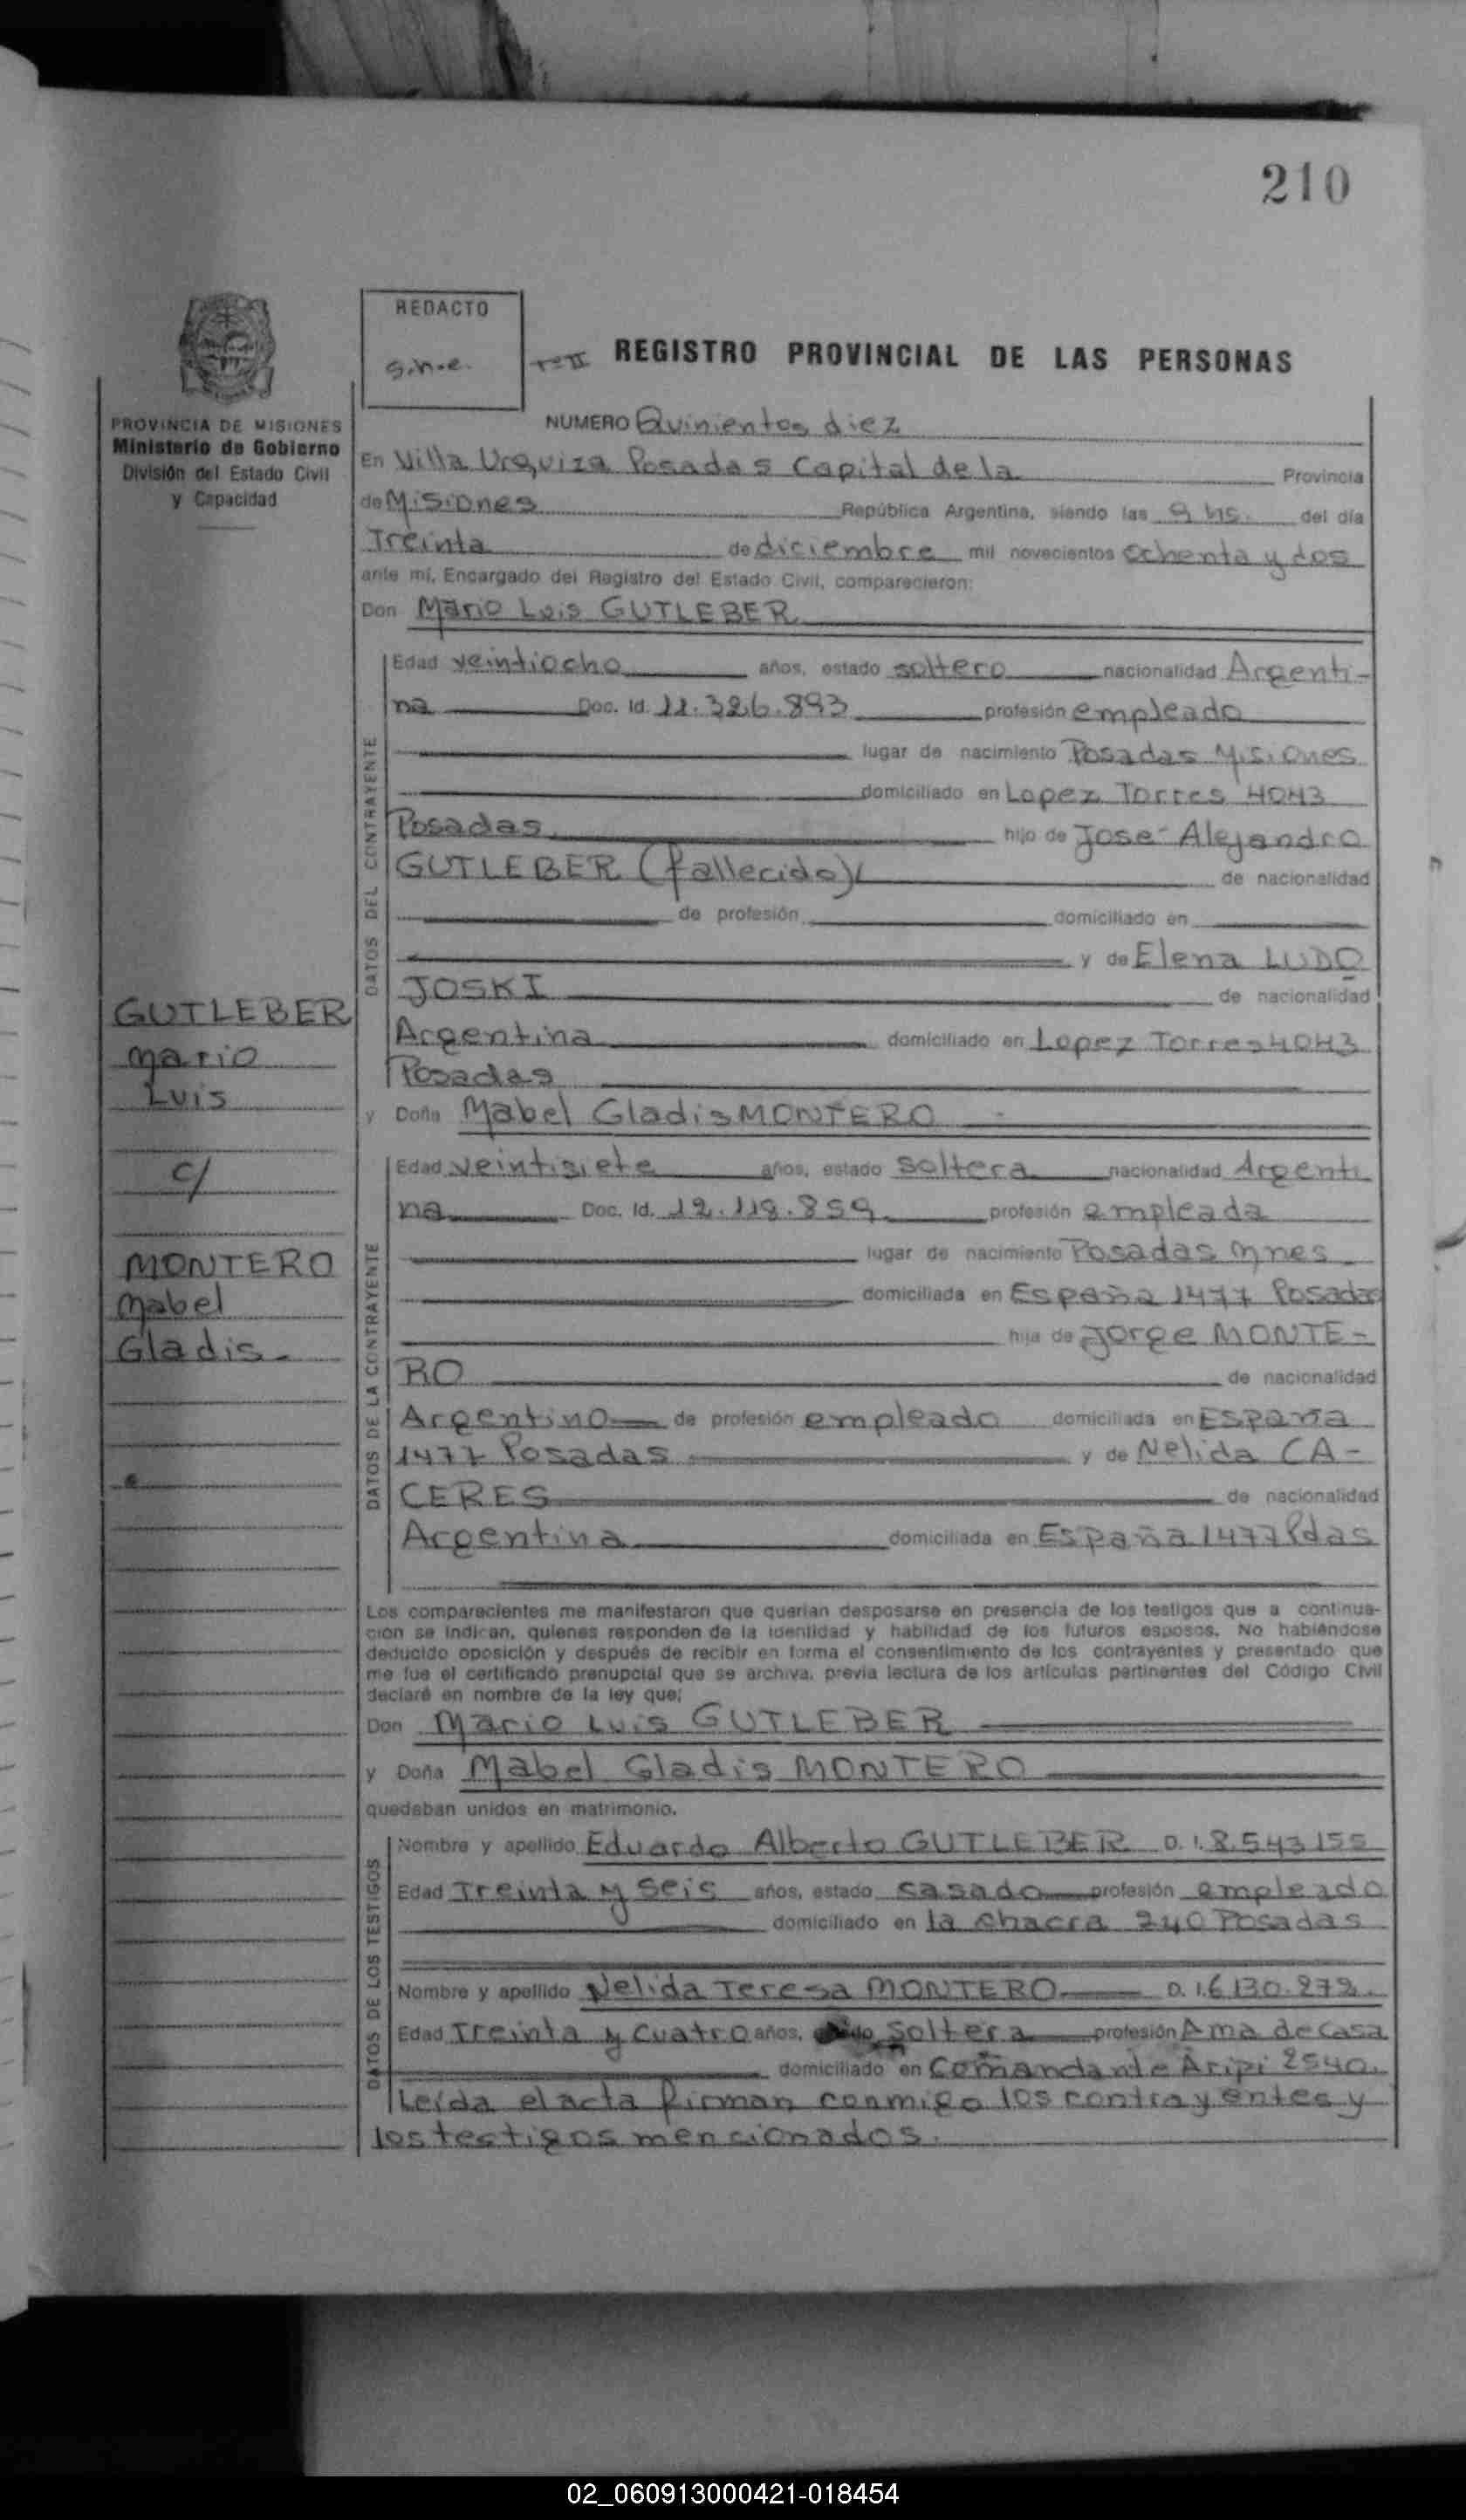 210
REDACTO
REGISTRO PROVINCIAL DE LAS PERSONAS
NUMERO Quinientos diez
PROVINCIA DE MISIONES
Ministerio de Gobierno
División del Estado Civil
y Capacidad
En Villa Urquiza Posadas Capital de la Provincia
de Misiones República Argentina, siendo las 9 hs. del día
Treinta de diciembre mil novecientos ochenta y dos
ante mí, Encargado del Registro del Estado Civil, comparecieron:
Don Mario Luis GUTLEBER
DATOS DEL CONTRAYENTE
Edad veintiocho años, estado soltero nacionalidad Argenti-
na Doc. Id. 11.326.893 profesión empleado
lugar de nacimiento Posadas Misiones
domiciliado en Lopez Torres 4043
Posadas hijo de José Alejandro
GUTLEBER (fallecido) de nacionalidad
de profesión domiciliado en
y de Elena LUDO
JOSKI de nacionalidad
Argentina domiciliado en Lopez Torres 4043
Posadas
GUTLEBER
Mario
Luis
c/
MONTERO
Mabel
Gladis.-
y Doña Mabel Gladis MONTERO
DATOS DE LA CONTRAYENTE
Edad veintisiete años, estado soltera nacionalidad Argenti
na Doc. Id. 12.118.859 profesión empleada
lugar de nacimiento Posadas Mnes
domiciliada en España 1477 Posadas
hija de Jorge MONTE-
RO de nacionalidad
Argentino de profesión empleado domiciliada en España
1477 Posadas y de Nelida CA-
CERES de nacionalidad
Argentina domiciliada en España 1477 Pdas
Los comparecientes me manifestaron que querían desposarse en presencia de los testigos que a continua-
ción se indican, quienes responden de la identidad y habilidad de los futuros esposos. No habiéndose
deducido oposición y después de recibir en forma el consentimiento de los contrayentes y presentado que
me fue el certificado prenupcial que se archiva, previa lectura de los artículos pertinentes del Código Civil
declaré en nombre de la ley que;
Don Mario Luis GUTLEBER
y Doña Mabel Gladis MONTERO
quedaban unidos en matrimonio.
DATOS DE LOS TESTIGOS
Nombre y apellido Eduardo Alberto GUTLEBER D.I. 8.543155
Edad Treinta y seis años, estado sasado profesión empleado
domiciliado en la chacra 240 Posadas
Nombre y apellido Nelida Teresa MONTERO D.I.6130.272.
Edad Treinta y cuatro años, soltera profesión Ama de Casa
domiciliado en Comandante Aripi 2540.
Leída el acta firman conmigo los contrayentes y
los testigos mencionados.
02_060913000421-018454